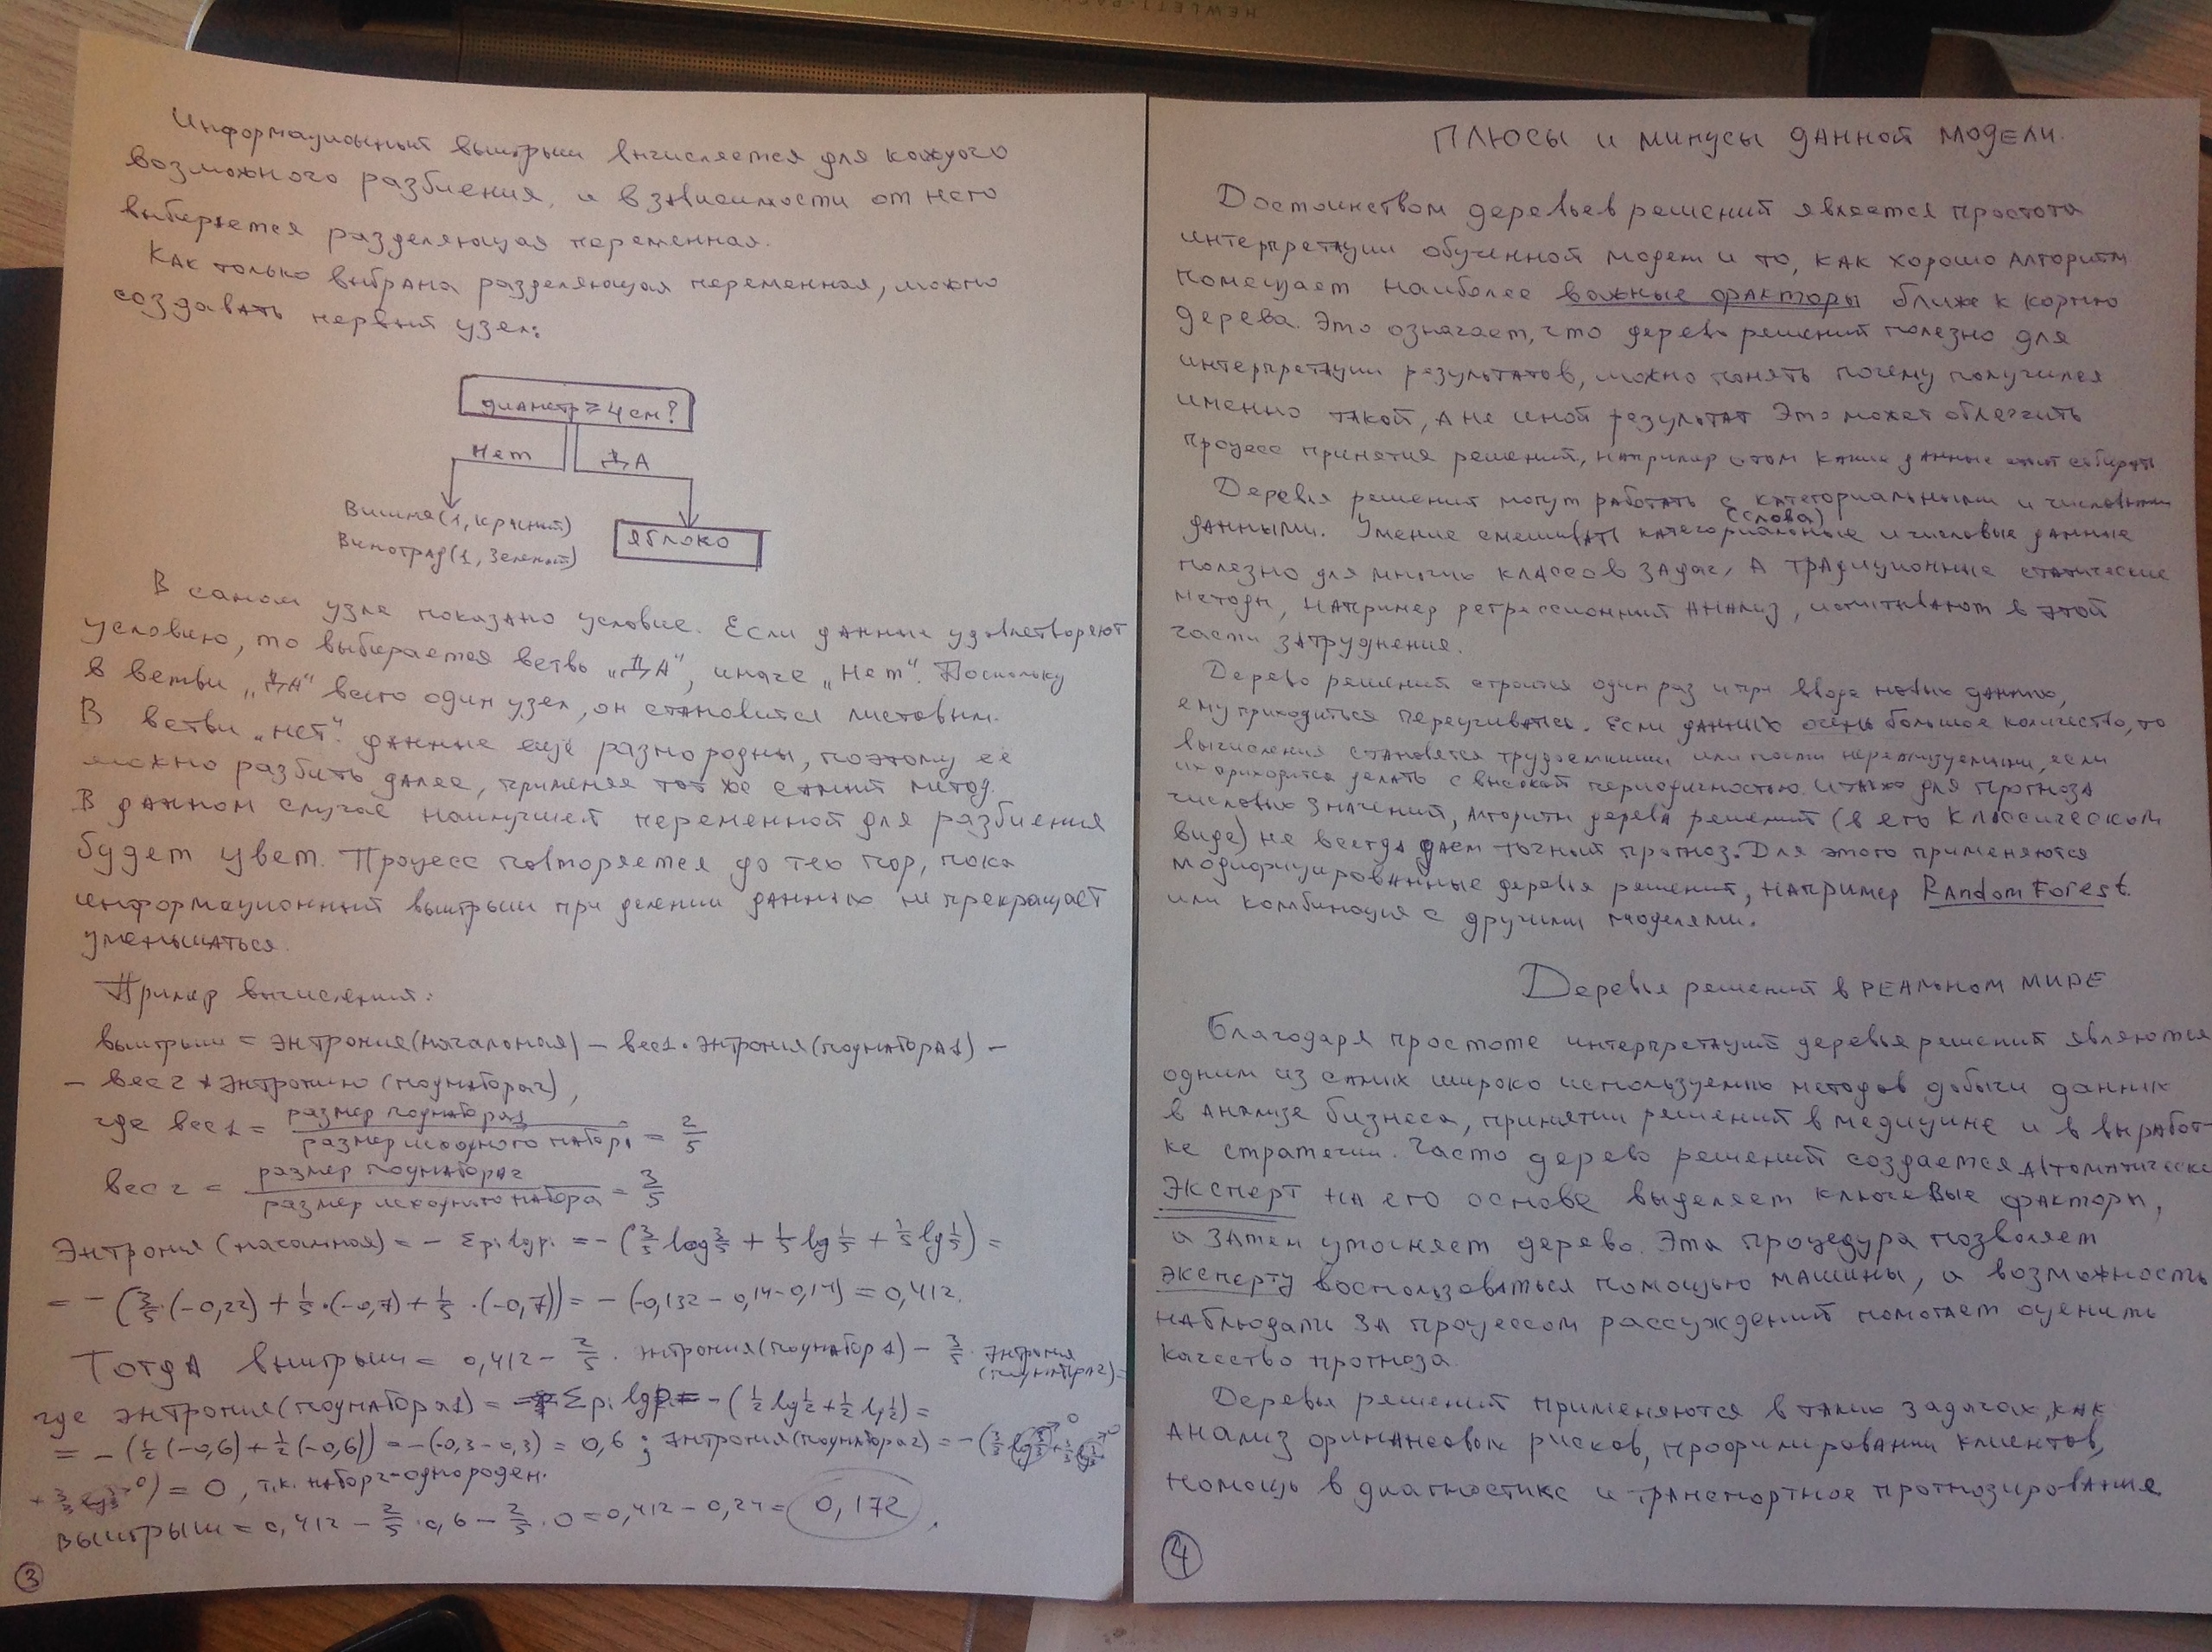 HEWLETT-PACK
Информационный выигрыш вычисляется для каждого
возможного разбиения, и в зависимости от него
выбирается разделяющая переменная.
Как только выбрана разделяющая переменная, можно
создавать первый узел:
диаметр ≥ 4 см?
Нет
ДА
Вишня (1, красный)
Виноград (1, зеленый)
яблоко
В самом узле показано условие. Если данные удовлетворяют
условию, то выбирается ветвь „ДА“, иначе „Нет“. Поскольку
в ветви „ДА“ всего один узел, он становится листовым.
В ветви „нет“ данные ещё разнородны, поэтому её
можно разбить далее, применяя тот же самый метод.
В данном случае наилучшей переменной для разбиения
будет цвет. Процесс повторяется до тех пор, пока
информационный выигрыш при делении данных не прекращает
уменьшаться.
Пример вычислений:
выигрыш = энтропия(начальная) – вес1 · энтропия(поднабора1) –
– вес2 * энтропию (поднабора2),
где вес1 = размер поднабора1 / размер исходного набора = 2/5
вес2 = размер поднабора2 / размер исходного набора = 3/5
Энтропия (начальная) = – Σ pi lg pi = – (3/5 log 3/5 + 1/5 lg 1/5 + 1/5 lg 1/5) =
= – (3/5 · (–0,22) + 1/5 · (–0,7) + 1/5 · (–0,7)) = – (–0,132 – 0,14 – 0,14) = 0,412.
Тогда выигрыш = 0,412 – 2/5 · энтропия(поднабора1) – 3/5 · энтропия (поднабора2) =
где энтропия(поднабора1) = – Σ pi lg pi = – (1/2 lg 1/2 + 1/2 lg 1/2) =
= – (1/2 (–0,6) + 1/2 (–0,6)) = – (–0,3 – 0,3) = 0,6 ; энтропия(поднабора2) = – (3/3 lg 3/3 → 0 + 3/3 lg 3/3 → 0
+ 3/3 lg 3/3 → 0) = 0, т.к. набор2 – однороден.
выигрыш = 0,412 – 2/5 · 0,6 – 2/5 · 0 = 0,412 – 0,24 = 0,172.
3
ПЛЮСЫ и минусы данной модели.
Достоинством деревьев решений является простота
интерпретации обученной модели и то, как хорошо алгоритм
помещает наиболее важные факторы ближе к корню
дерева. Это означает, что дерево решений полезно для
интерпретации результатов, можно понять почему получился
именно такой, а не иной результат Это может облегчить
процесс принятия решений, например о том какие данные собирать
Деревья решений могут работать с категориальными и числовыми
(слова)
данными. Умение смешивать категориальные и числовые данные
полезно для многих классов задач, а традиционные статические
методы, например регрессионный анализ, испытывают в этой
части затруднение.
Дерево решений строится один раз и при вводе новых данных,
ему приходиться переучиваться. Если данных очень большое количество, то
вычисления становятся трудоемкими или почти нереализуемыми, если
их приходится делать с высокой периодичностью. Также для прогноза
числовых значений, алгоритм дерева решений (в его классическом
виде) не всегда даем точный прогноз. Для этого применяются
модифицированные деревья решений, например Random Forest.
или комбинация с другими моделями.
Деревья решений в РЕАЛЬНОМ МИРЕ
Благодаря простоте интерпретаций деревья решений являются
одним из самых широко используемых методов добычи данных
в анализе бизнеса, принятии решений в медицине и в выработ-
ке стратегии. Часто дерево решений создается автоматически
Эксперт на его основе выделяет ключевые факторы,
а затем уточняет дерево. Эта процедура позволяет
эксперту воспользоваться помощью машины, а возможность
наблюдать за процессом рассуждений помогает оценить
качество прогноза.
Деревья решений применяются в таких задачах, как
анализ финансовых рисков, профилировании клиентов,
помощь в диагностике и транспортное прогнозирование
4